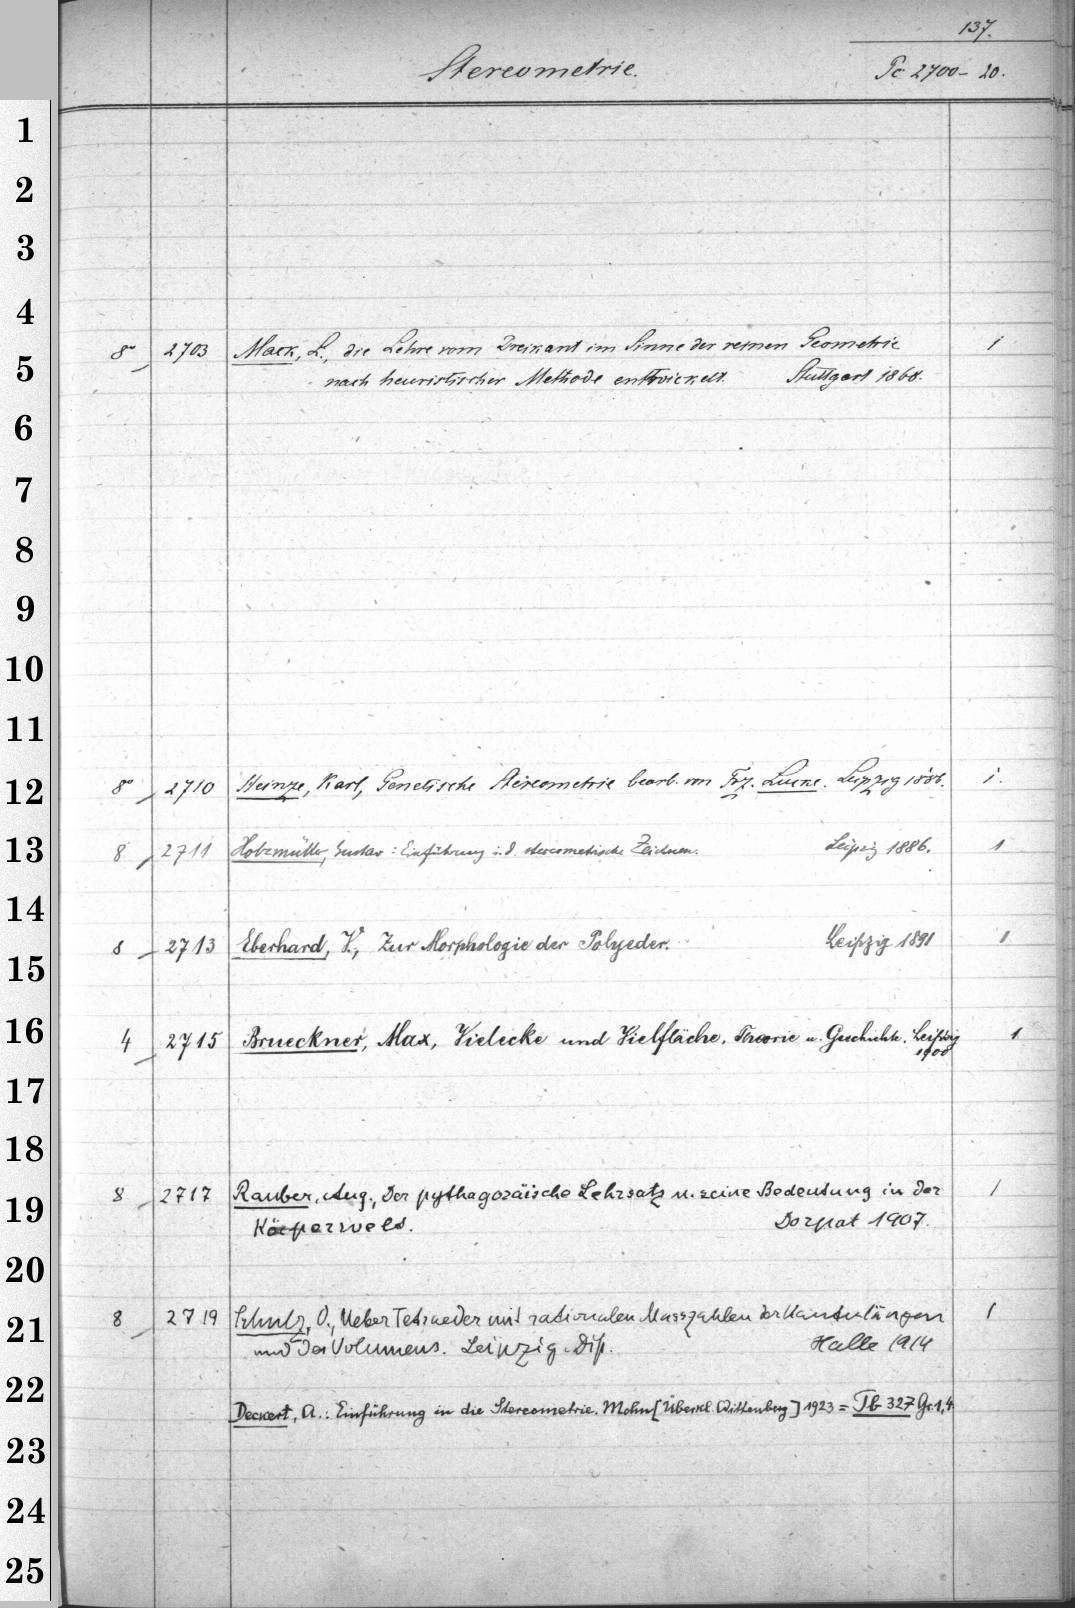 137.
Stereometrie. Pc 2700-20.
1
2
3
4
8° 2703 Mack, L., die Lehre vom Dreikant im Sinne der reinen Geometrie 1
5
nach heuristischer Methode entwickelt. Stuttgart 1868.
6
7
8
9
10
11
12
8° 2710 Heinze, Karl, Genetische Stereometrie bearb. von Frz. Lucke. Leipzig 1886. 1.
13
8 2711 Holzmüller, Gustav: Einführung i. d. stereometrische Zeichnen. Leipzig 1886. 1
14
8 2713 Eberhard, V., Zur Morphologie der Polyeder. Leipzig 1891 1
15
16
4 2715 Brueckner, Max, Vielecke und Vielfläche. Theorie u. Geschichte. Leipzig 1
1900
17
18
8 2717 Rauber, Aug., Der pythagoräische Lehrsatz u. seine Bedeutung in der 1
19
Körperwelt. Dorpat 1907.
20
8 2719 Schulz, O., Ueber Tetraeder mit rationalen Masszahlen der Kantenlängen 1
21
und des Volumens. Leipzig. Diss. Halle 1914
22
Deckert, A.: Einführung in die Stereometrie. Mohn [Überkl. Wittenberg] 1923 = Tb 327 Gr. 1,4
23
24
25